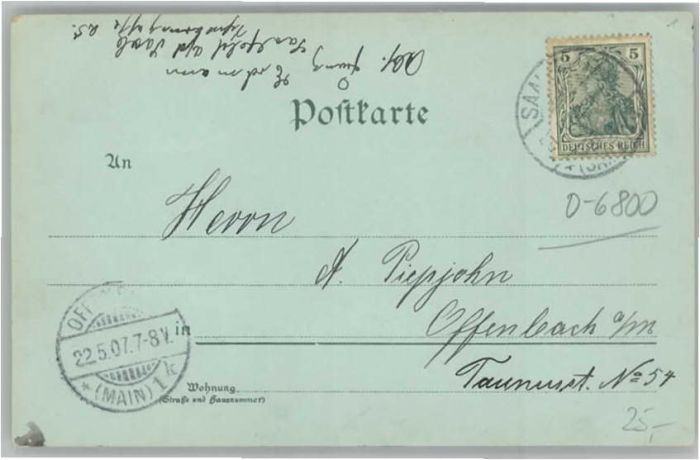 Postkarte
5 5
DEUTSCHES REICH
SAAL
An
D-6800
Herrn
A. Piepjohn
in Offenbach a/m
Taunusst. No 54
OFF
22.5.07.7-8V.
(MAIN) 1 k
Wohnung
(Straße und Hausnummer)
25,-